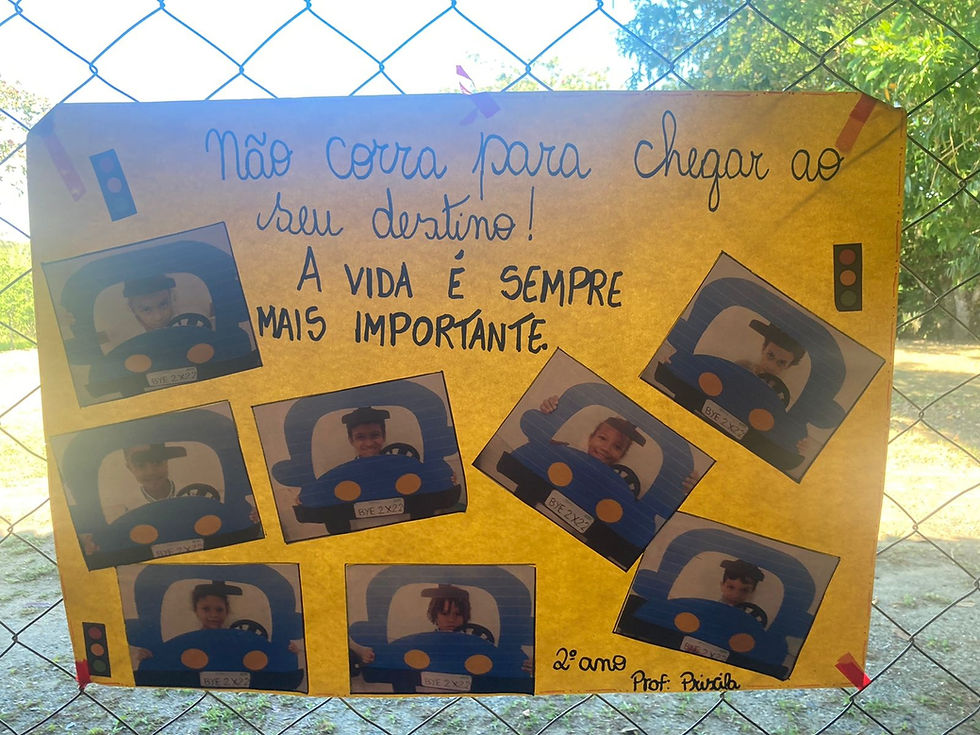 Não corra para chegar ao
seu destino!
A VIDA É SEMPRE
MAIS IMPORTANTE.
BYE 2X22
BYE 2X22
BYE 2X22
BYE 2X22
BYE 2X22
BYE 2X22
BYE 2X22
BYE 2X22
2º ano
Prof: Priscila